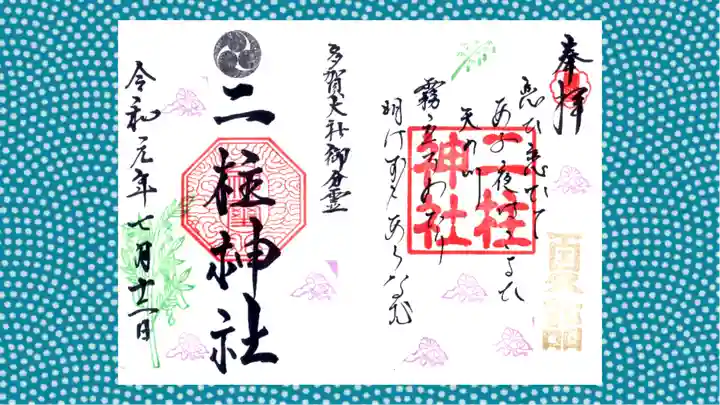 奉拝
恋ひ恋ひて
あふ夜はこよひ
天の川
霧立ちわたり
明けずもあらなむ
二柱
神社
多賀大社御分霊
二柱神社
令和元年七月十二日